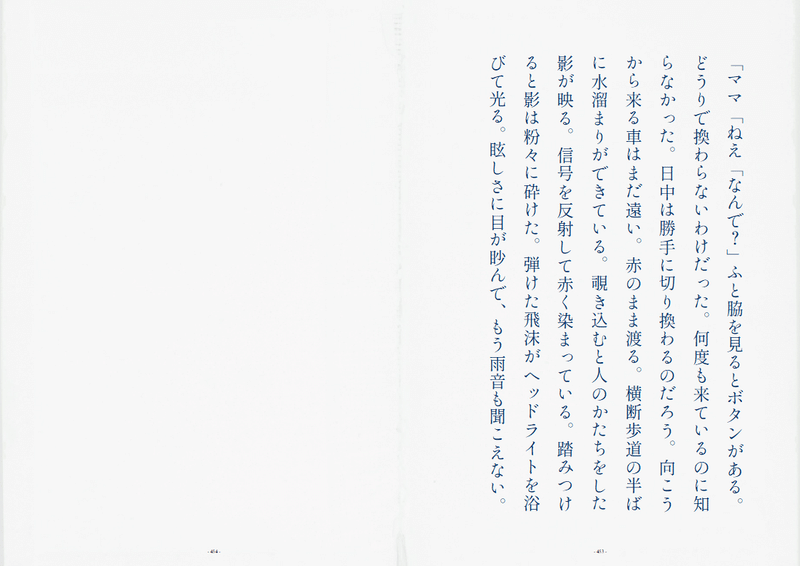 「ママ「ねえ「なんで？」ふと脇を見るとボタンがある。
どうりで換わらないわけだった。何度も来ているのに知
らなかった。日中は勝手に切り換わるのだろう。向こう
から来る車はまだ遠い。赤のまま渡る。横断歩道の半ば
に水溜まりができている。覗き込むと人のかたちをした
影が映る。信号を反射して赤く染まっている。踏みつけ
ると影は粉々に砕けた。弾けた飛沫がヘッドライトを浴
びて光る。眩しさに目が眇んで、もう雨音も聞こえない。